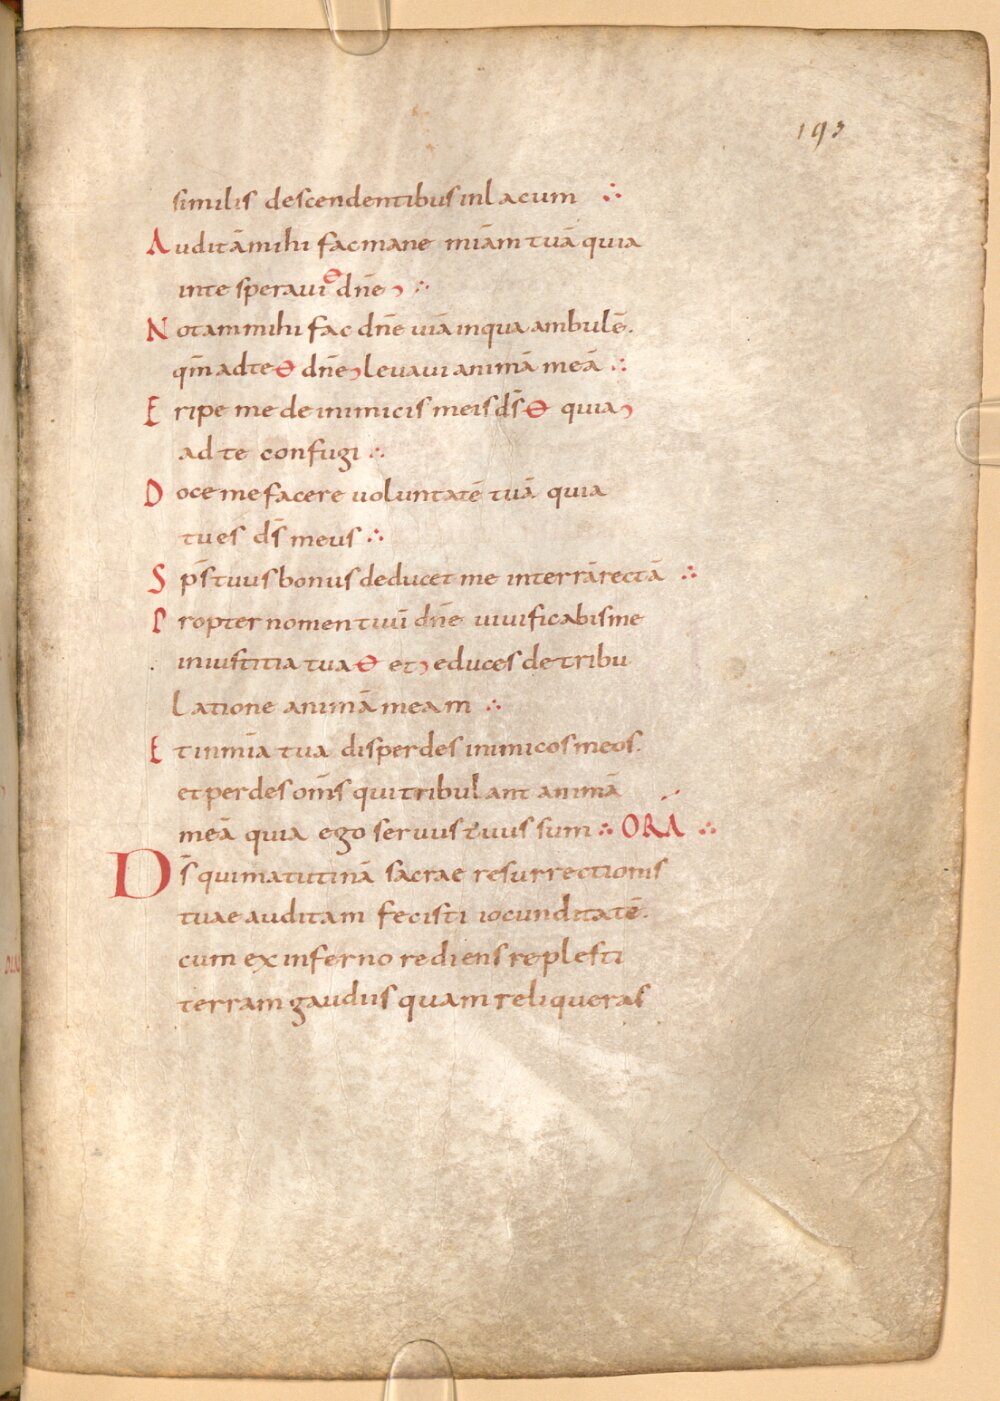 193
similis descendentibus in lacum ∴
Auditā mihi fac mane miām tuā quia
in te speravi ꝋ dn̄e , ∴
Notam mihi fac dn̄e uiā in qua ambulē.
qm̄ ad te ꝋ dn̄e , levavi animā meā ∴
Eripe me de inimicis meis ds̄ ꝋ quia ,
ad te confugi ∴
Doce me facere voluntatē tuā quia
tu es ds̄ meus ∴
Sps̄ tuus bonus deducet me in terrā rectā ∴
Propter nomen tuū dn̄e uiuificabis me
in iustitia tua ꝋ et , educes de tribu
Latione animā meam ∴
Et in mīa tua disperdes inimicos meos.
et perdes om̄s qui tribulant animā
meā quia ego servus tuus sum ∴ ORA ∴
Ds̄ qui matutinā sacrae resurrectionis
tuae auditam fecisti iocunditatē.
cum ex inferno rediens replesti
terram gaudiis quam reliqueras